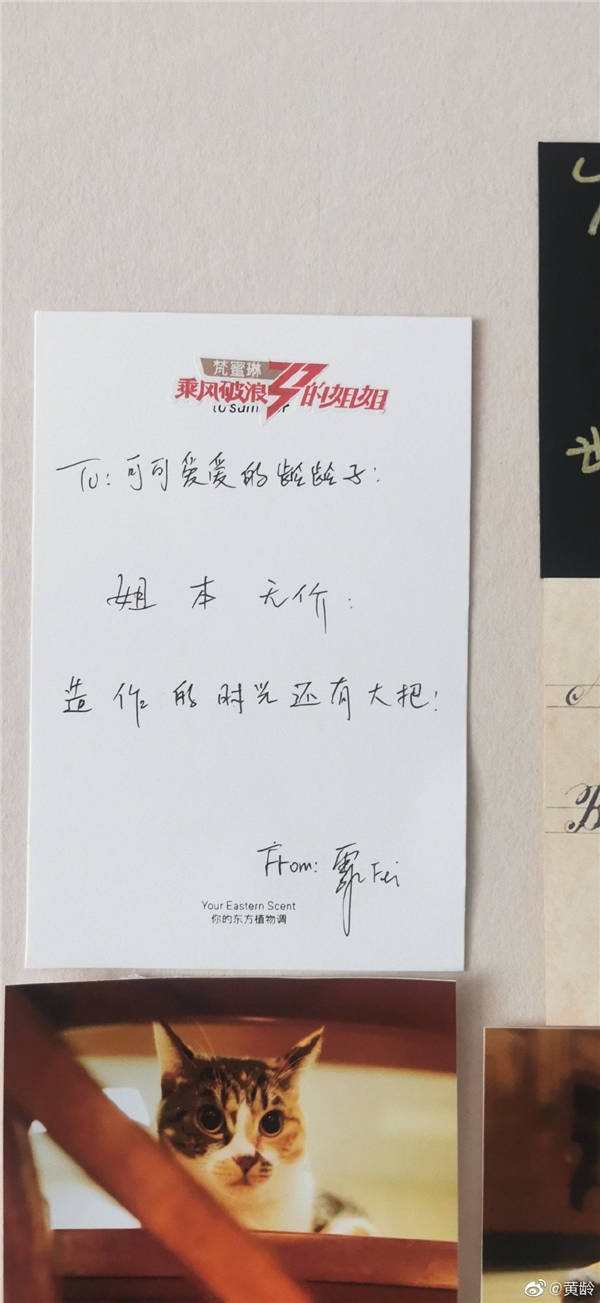 梵蜜琳
乘风破浪的姐姐
to summer
To：可可爱爱的龄龄子：
姐本无价．
造作的时光还有大把！
From：霏Fei
Your Eastern Scent
你的东方植物调
@黄龄